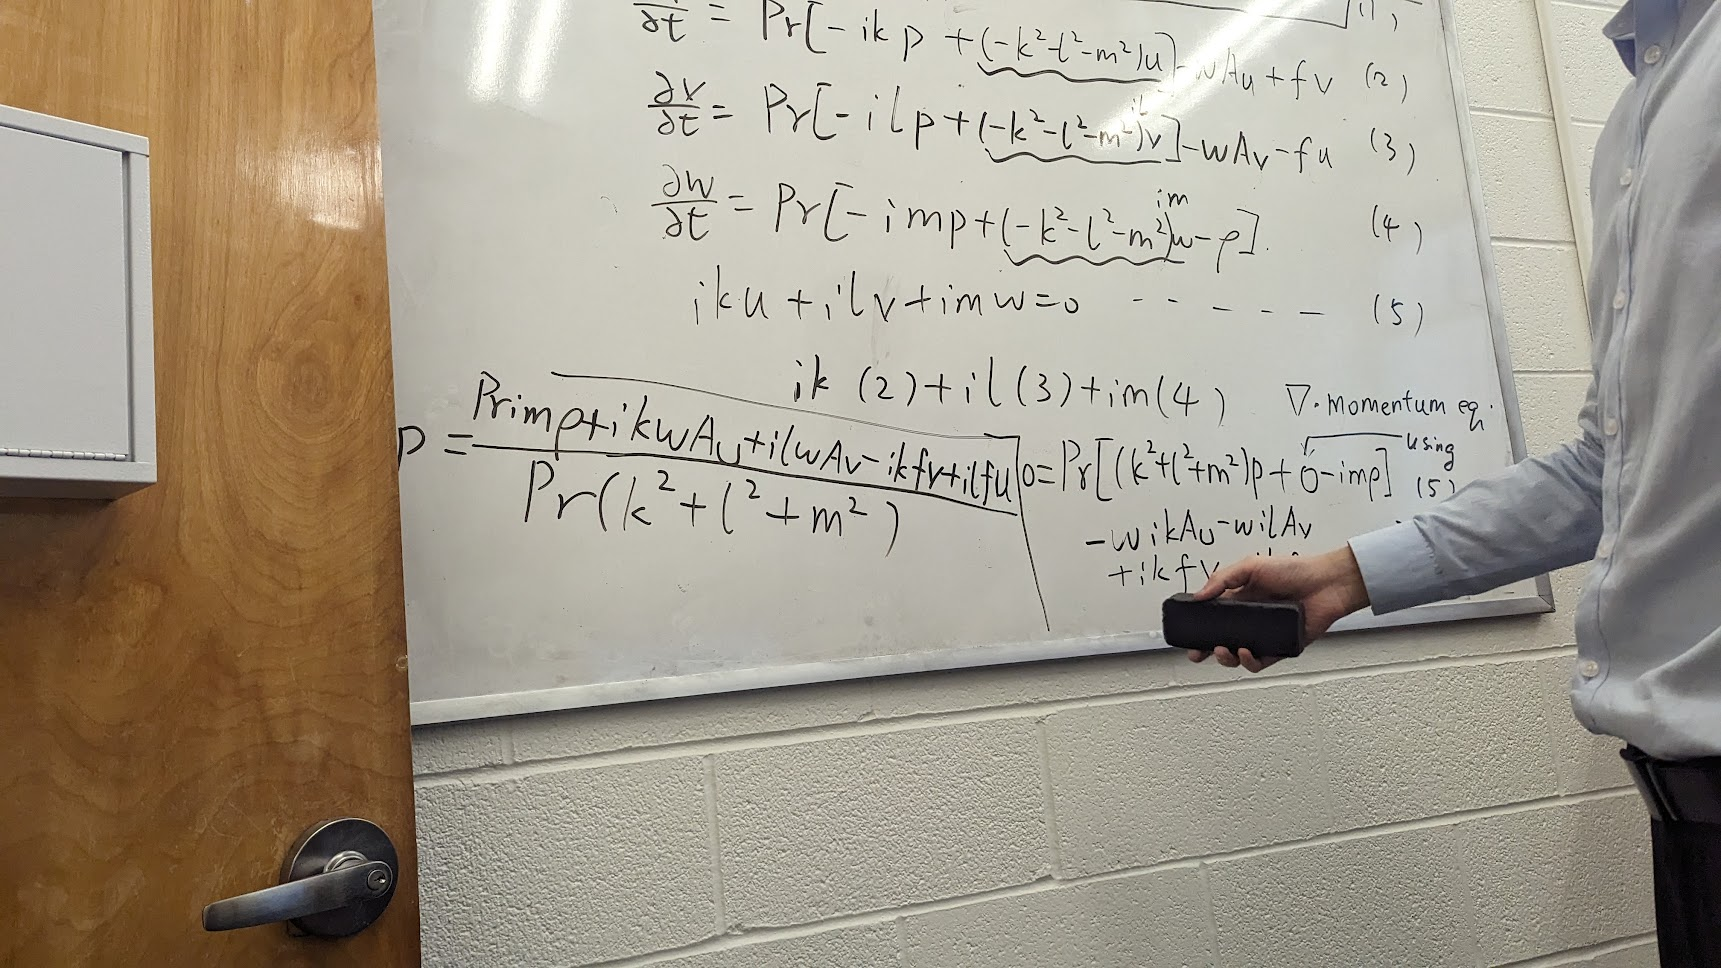 ∂t = Pr[-ikp + (-k²-l²-m²)u] - wAu + fv (2)
∂v/∂t = Pr[-ilp + (-k²-l²-m²)v] - wAv - fu (3)
im
∂w/∂t = Pr[-imp + (-k²-l²-m²)w - ρ]. (4)
iku + ilv + imw = 0 - - - - - (5)
ik (2) + il (3) + im(4) ∇·momentum eq.
p = (Primρ + ikwAu + ilwAv - ikfv + ilfu) / (Pr(k² + l² + m²))
0 = Pr[(k²+l²+m²)p + 0 - imρ] using (5)
-wikAu - wilAv
+ikfv